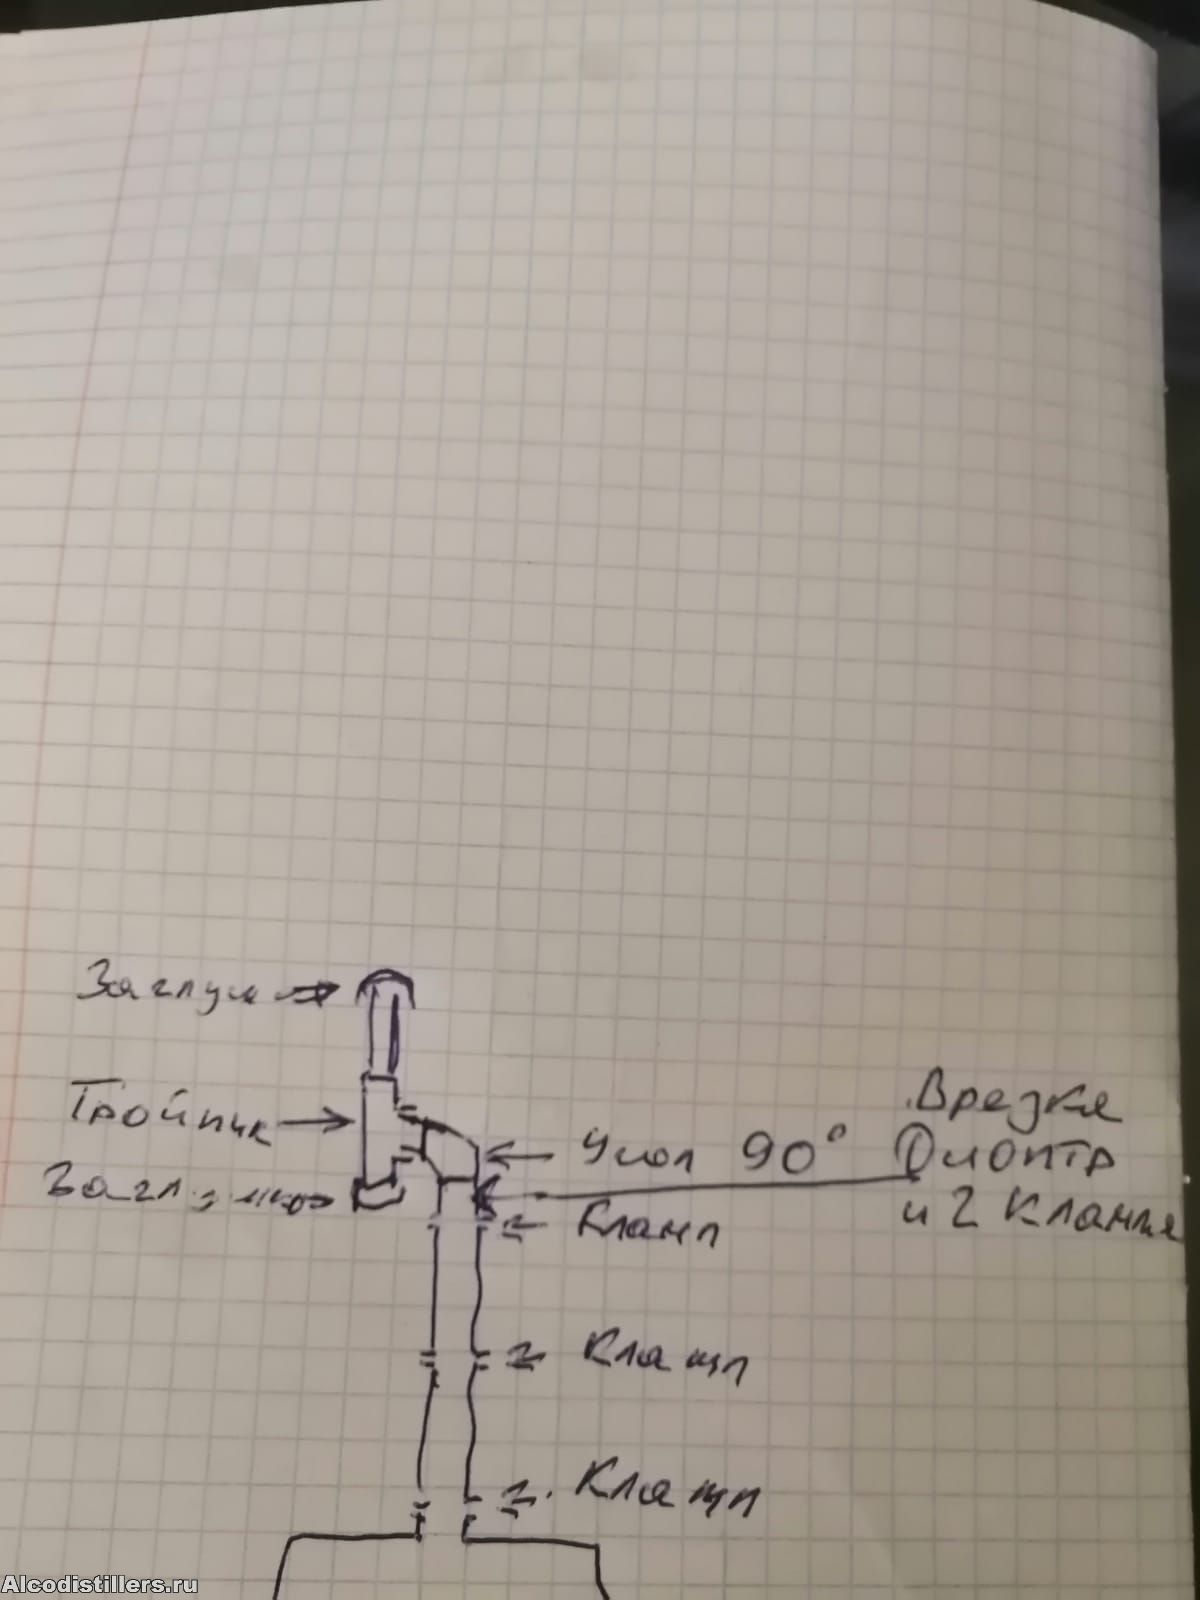 Заглуш
Тройник
Заглушка
Угол 90°
Врезка
Диоптр
и 2 Клампа
Кламп
Кламп
Кламп
Alcodistillers.ru